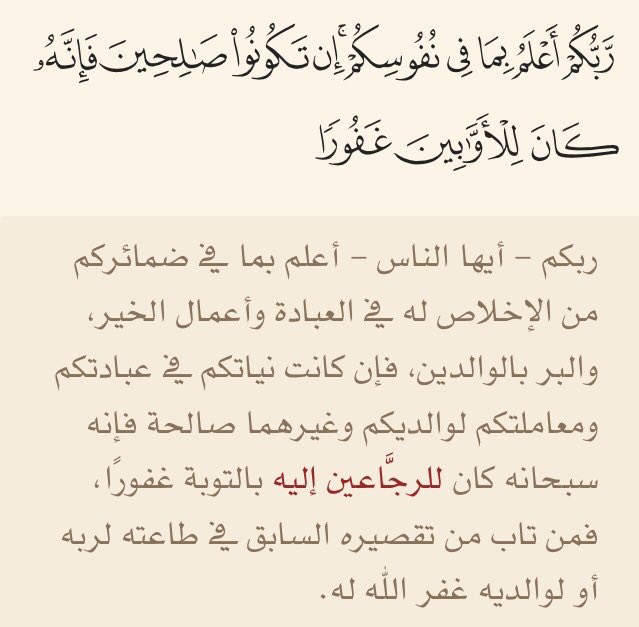 رَّبُّكُمْ أَعْلَمُ بِمَا فِي نُفُوسِكُمْ ۚ إِن تَكُونُوا۟ صَـٰلِحِينَ فَإِنَّهُۥ
كَانَ لِلْأَوَّٰبِينَ غَفُورًا
ربكم – أيها الناس – أعلم بما في ضمائركم
من الإخلاص له في العبادة وأعمال الخير،
والبر بالوالدين، فإن كانت نياتكم في عبادتكم
ومعاملتكم لوالديكم وغيرهما صالحة فإنه
سبحانه كان للرجَّاعين إليه بالتوبة غفورًا،
فمن تاب من تقصيره السابق في طاعته لربه
أو لوالديه غفر الله له.